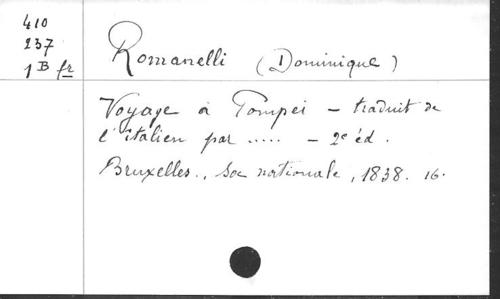 410
237
1 B fr
Romanelli (Dominique)
Voyage à Pompei - traduit de
l'italien par ..... - 2e éd.
Bruxelles., Soc nationale, 1838. 16.